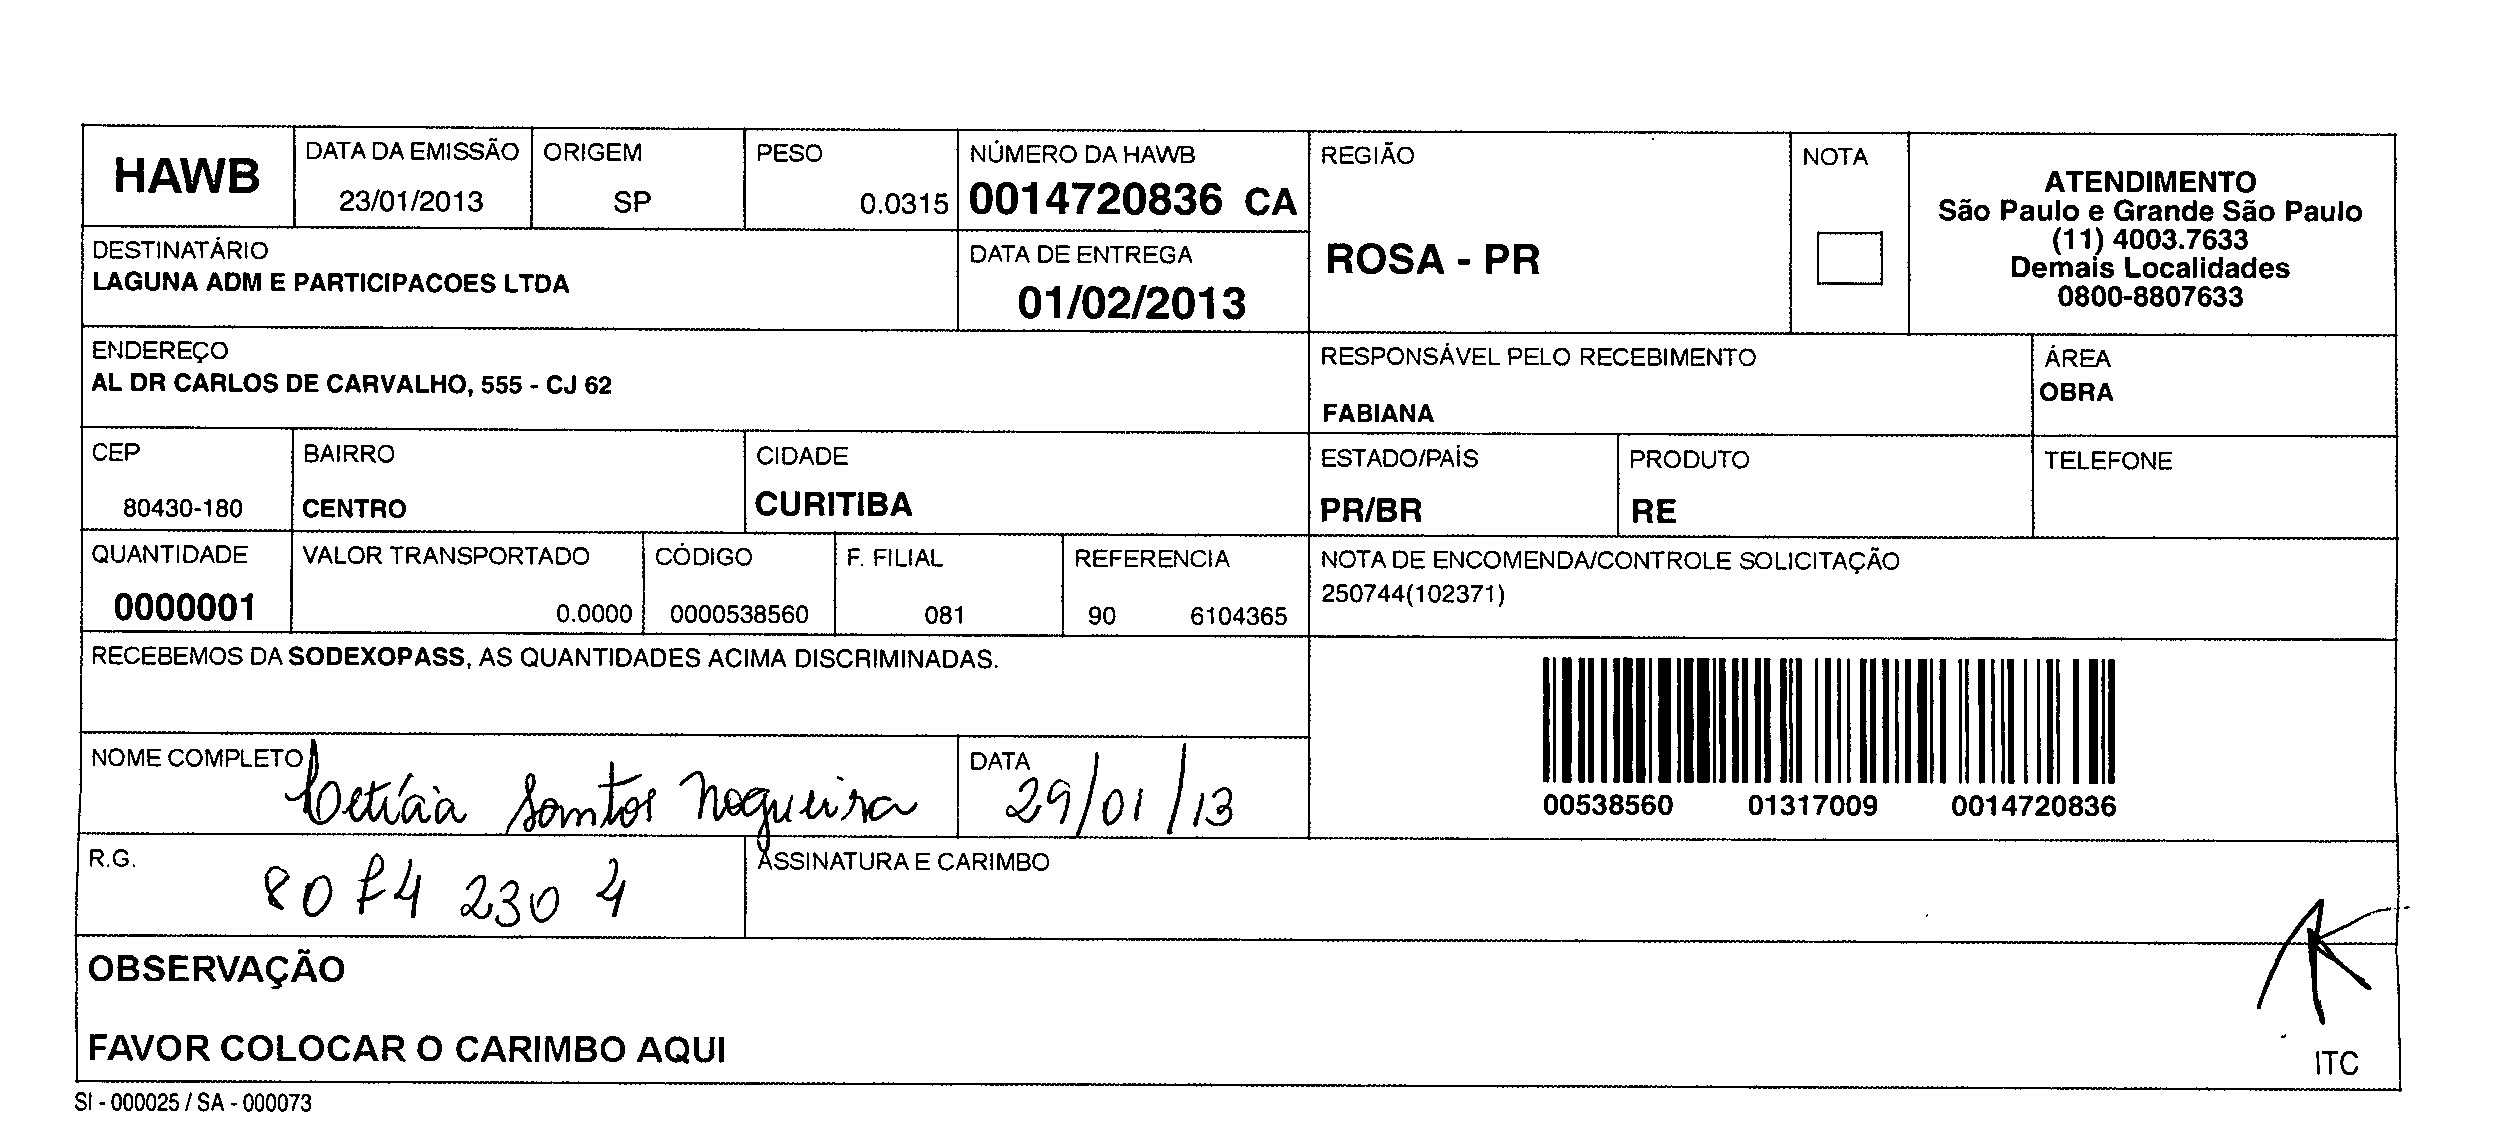 HAWB
DATA DA EMISSÃO
23/01/2013
ORIGEM
SP
PESO
0.0315
NÚMERO DA HAWB
0014720836 CA
REGIÃO
ROSA - PR
NOTA
ATENDIMENTO
São Paulo e Grande São Paulo
(11) 4003.7633
Demais Localidades
0800-8807633
DESTINATÁRIO
LAGUNA ADM E PARTICIPACOES LTDA
DATA DE ENTREGA
01/02/2013
ENDEREÇO
AL DR CARLOS DE CARVALHO, 555 - CJ 62
RESPONSÁVEL PELO RECEBIMENTO
FABIANA
ÁREA
OBRA
CEP
80430-180
BAIRRO
CENTRO
CIDADE
CURITIBA
ESTADO/PAÍS
PR/BR
PRODUTO
RE
TELEFONE
QUANTIDADE
0000001
VALOR TRANSPORTADO
0.0000
CÓDIGO
0000538560
F. FILIAL
081
REFERENCIA
90 6104365
NOTA DE ENCOMENDA/CONTROLE SOLICITAÇÃO
250744(102371)
RECEBEMOS DA SODEXOPASS, AS QUANTIDADES ACIMA DISCRIMINADAS.
00538560 01317009 0014720836
NOME COMPLETO
Letícia Santos Nogueira
DATA
29/01/13
R.G.
8074 230 4
ASSINATURA E CARIMBO
OBSERVAÇÃO
FAVOR COLOCAR O CARIMBO AQUI
ITC
SI - 000025 / SA - 000073